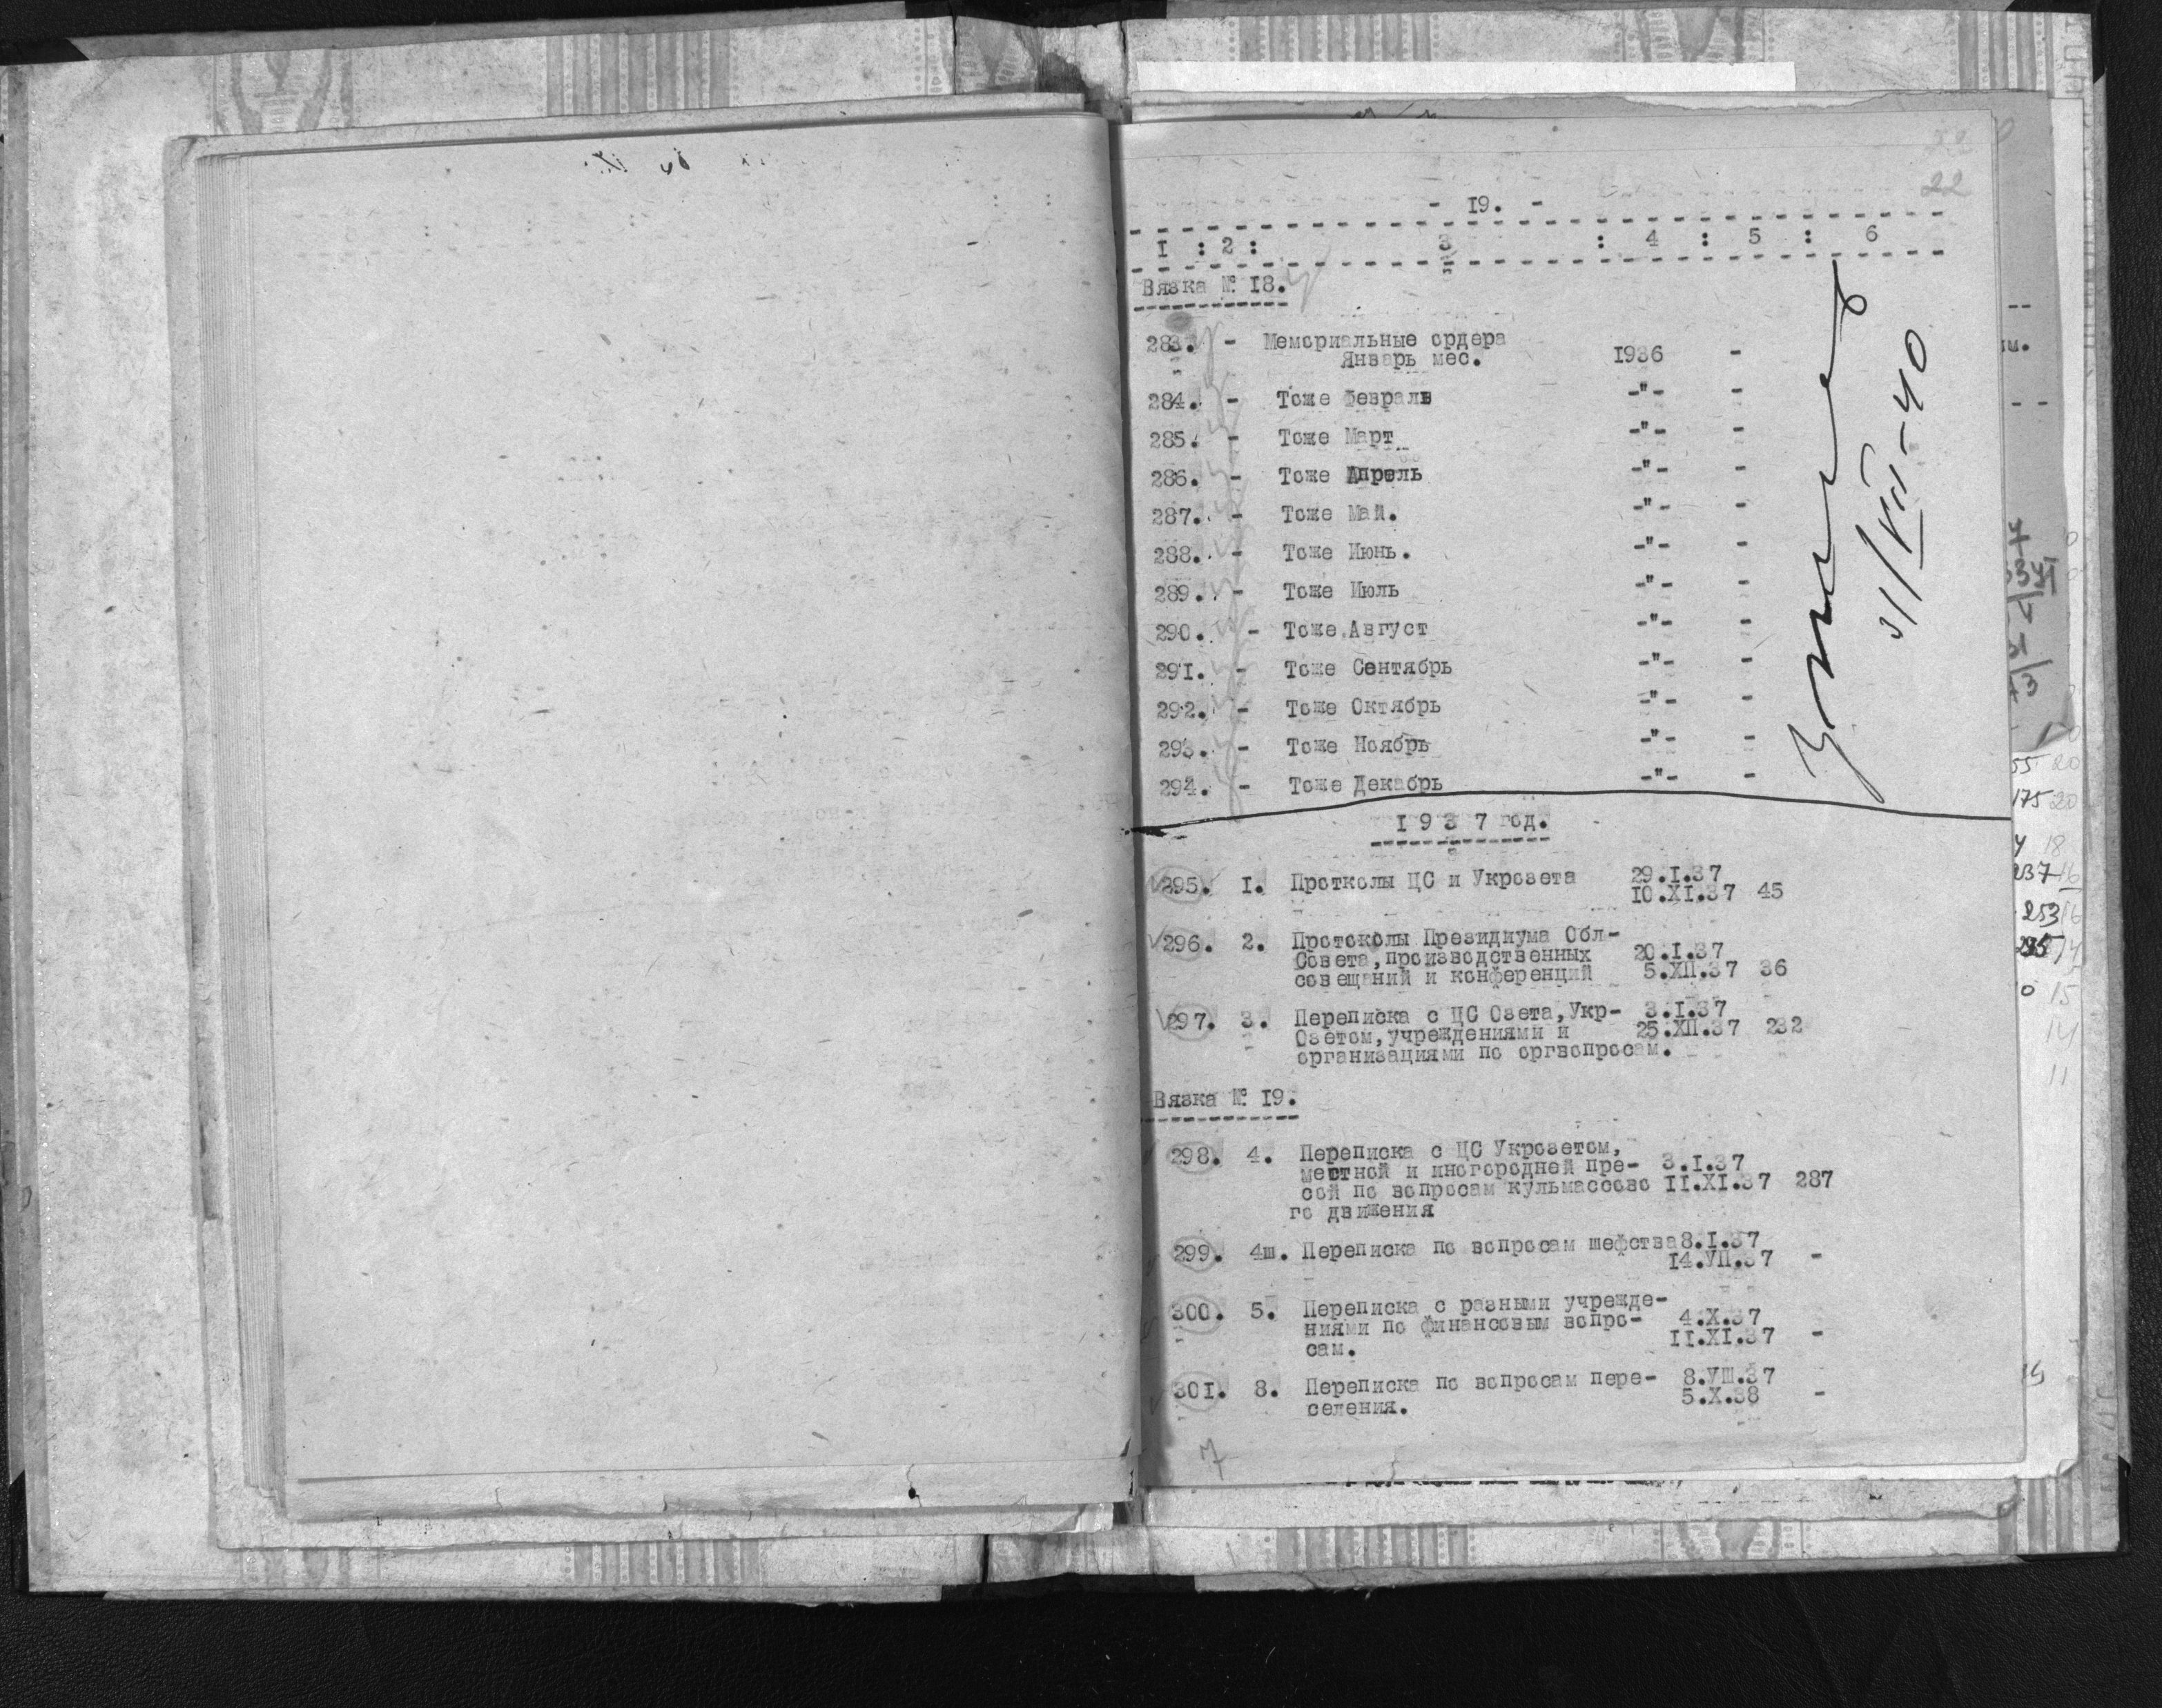 22
- 19. -
I : 2 : 3 : 4 : 5 : 6
Вязка № 18.
283. - Мемориальные ордера
Январь мес. 1936 -
284. - Тоже Февраль -"- -
285. - Тоже Март -"- -
286. - Тоже Апрель -"- -
287. - Тоже Май. -"- -
288. - Тоже Июнь. -"- -
289. - Тоже Июль -"- -
290. - Тоже Август -"- -
291. - Тоже Сентябрь -"- -
292. - Тоже Октябрь -"- -
293. - Тоже Ноябрь -"- -
294. - Тоже Декабрь -"- -
31/VII-40
1 9 3 7 год.
295. I. Протколы ЦС и Укрозета 29.I.37
10.XI.37 45
296. 2. Протоколы Президиума Обл-
Совета, производственных 20.I.37
совещаний и конференций 5.XП.37 36
297. 3. Переписка с ЦС Озета, Укр- 3.I.37
Озетом, учреждениями и 25.XП.37 232
организациями по оргвопросам.
Вязка № 19.
298. 4. Переписка с ЦС Укрозетом,
местной и иногородней пре- 3.I.37
сой по вопросам кульмассово II.XI.37 287
го движения
299. 4ш. Переписка по вопросам шефства 8.I.37
14.УП.37 -
300. 5. Переписка с разными учрежде-
ниями по финансовым вопро- 4.X.37
сам. II.XI.37 -
301. 8. Переписка по вопросам пере- 8.УШ.37
селения. 5.X.38 -
7